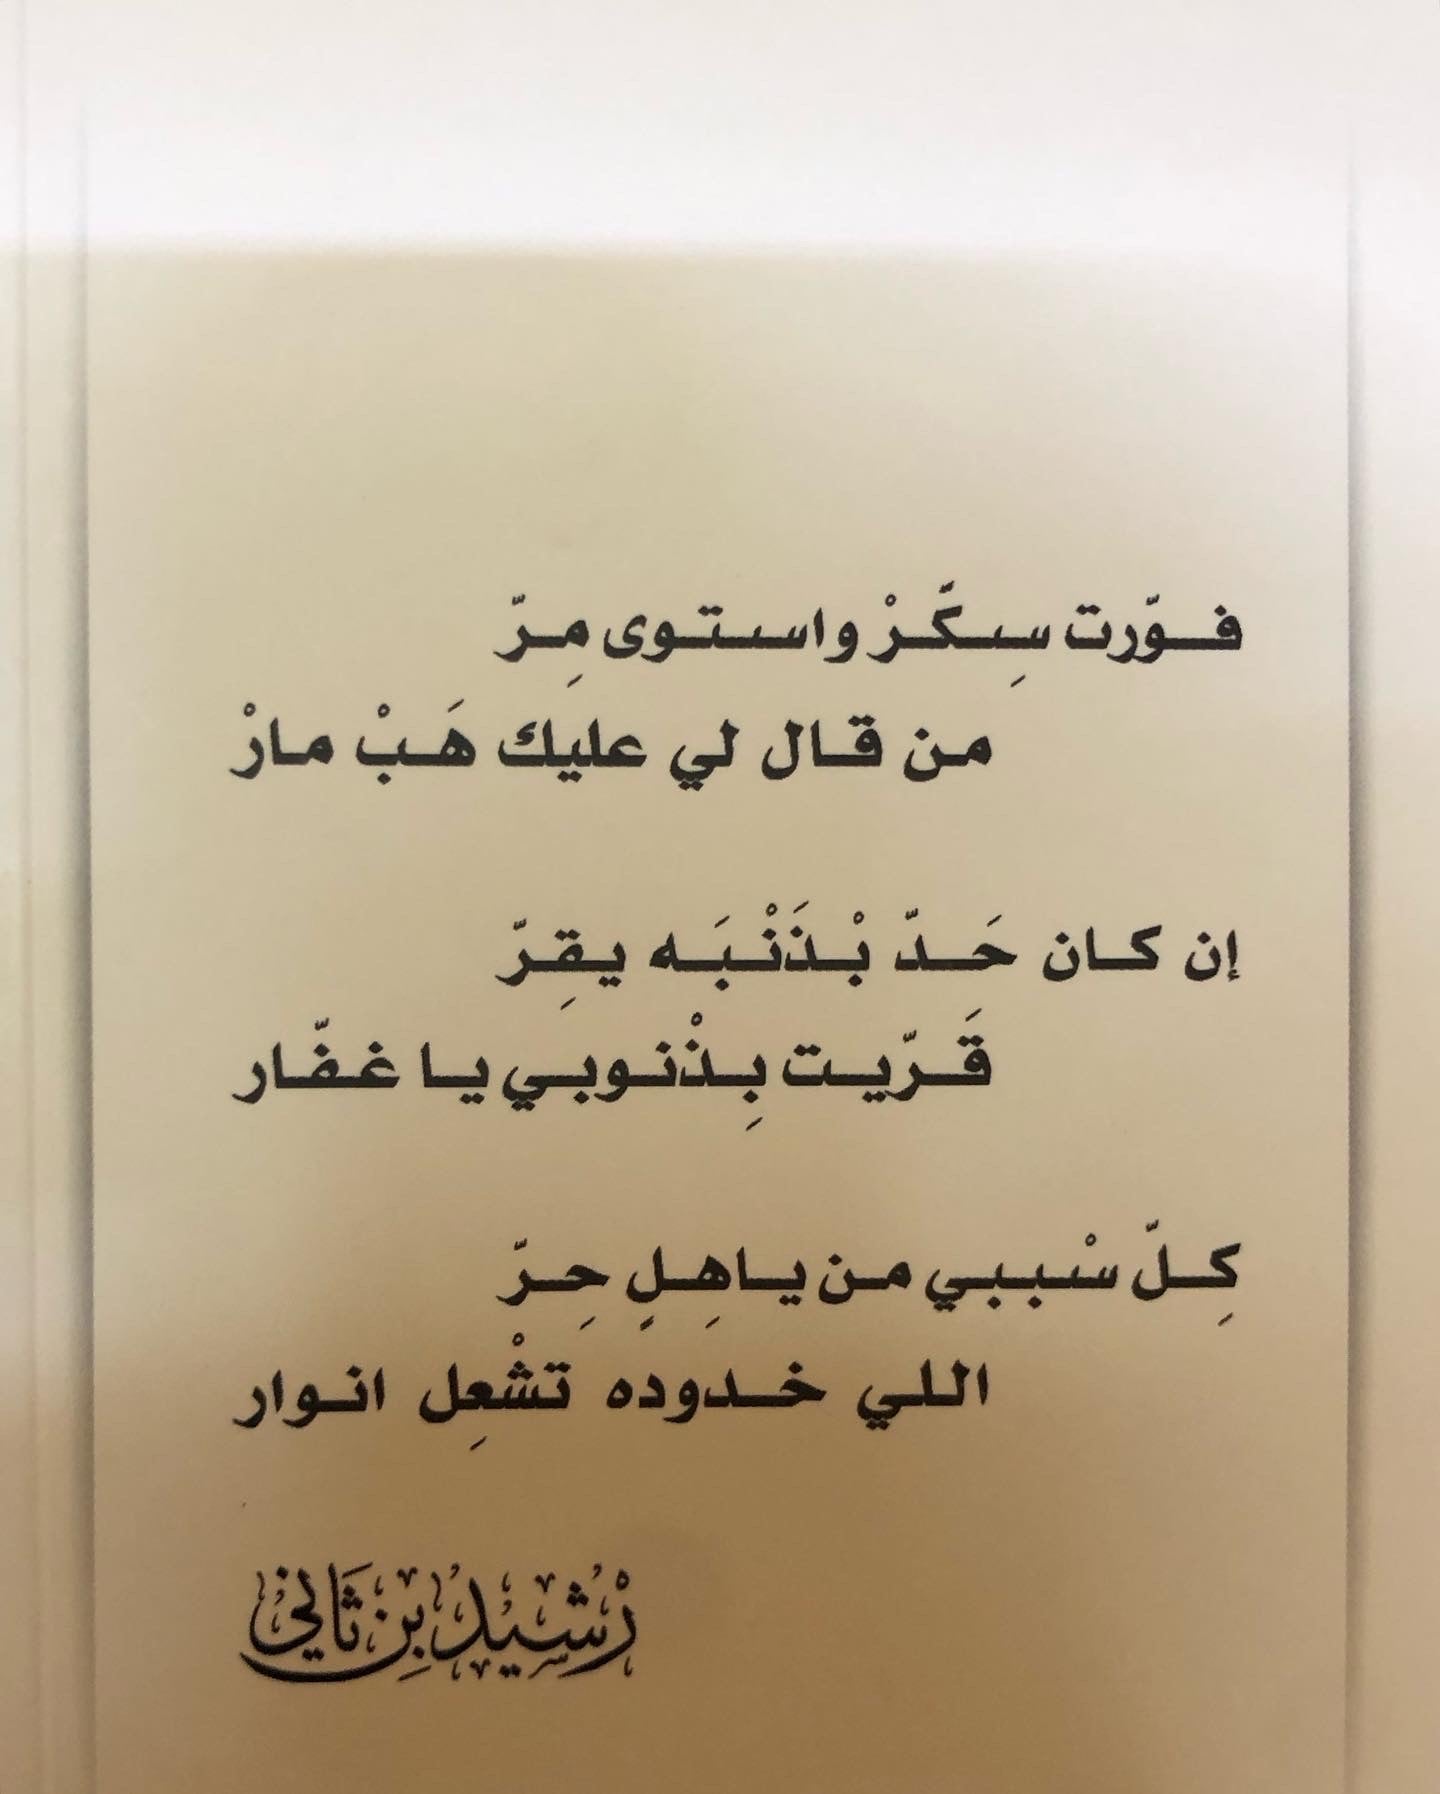 فوّرت سِكّرْ واستوى مِرّ
من قال لي عليك هَبْ مارْ
إن كان حَدّ بْذَنْبَه يقِرّ
قَرّيت بِذْنوبي يا غفّار
كِلّ سْببي من ياهِلٍ حِرّ
اللي خدوده تشْعِل انوار
رشيد بن ثاني